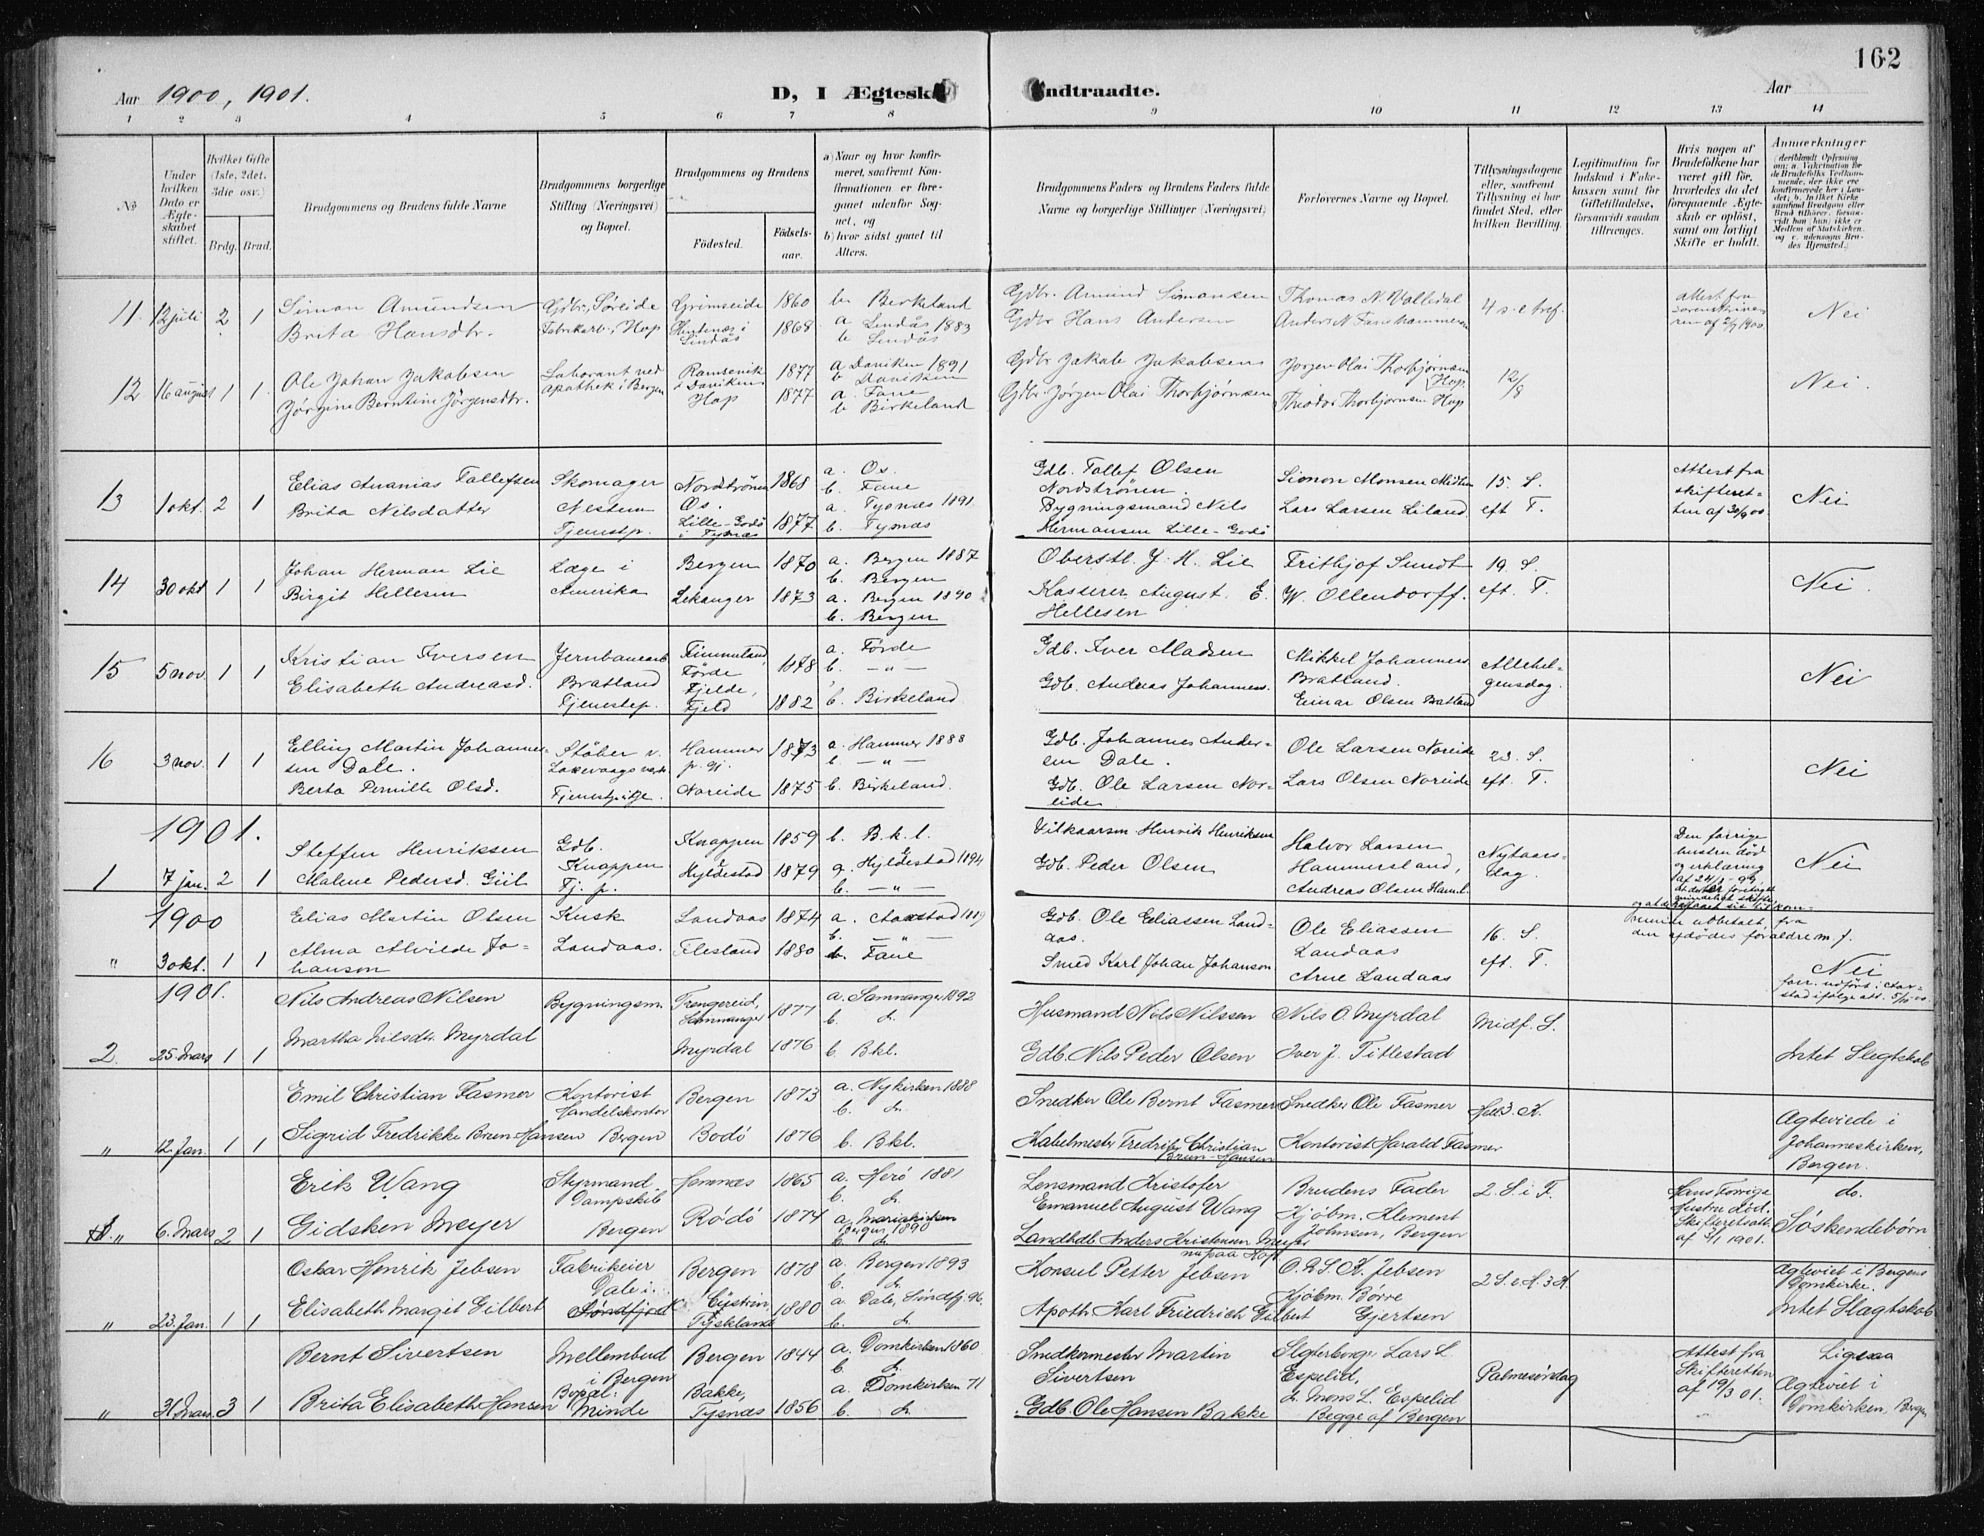 162
Aar 1900, 1901.
D, I Ægteska
ndtraadte.
Aar
1 2 3 4 5 6 7 8 9 10 11 12 13 14
No
Under hvilken Dato er Ægteskabet stiftet.
Hvilket Gifte (1ste, 2det, 3die osv.)
Brdg. Brud.
Brudgommens og Brudens fulde Navne
Brudgommens borgerlige Stilling (Næringsvei) og Bopæl.
Brudgommens og Brudens
Födested.
Födselsaar.
a) Naar og hvor konfirmeret, saafremt Konfirmationen er foregaaet udenfor Sognet, og
b) hvor sidst gaaet til Alters.
Brudgommens Faders og Brudens Faders fulde Navne og borgerlige Stillinger (Næringsvei)
Forlovernes Navne og Bopæl.
Tillysningsdagene eller, saafremt Tillysning ei har fundet Sted, efter hvilken Bevilling.
Legitimation for Indskud i Fakekassen samt for Giftetilladelse, forsaavidt saadan tiltrænges.
Hvis nogen af Brudefolkene har været gift før, hvorledes da det foregaaende Ægteskab er opløst, samt om lovligt Skifte er holdt.
Anmærkninger
11 12 juli 2 1
Simon Amundsen
Brita Hansdtr.
Gdbr. Søreide
Fabrikarb., Hop
Grimseide 1860
Lindås 1868
b. Birkeland
a Lindås 1883
b Lindås
Gdbr. Amund Simonsen
Gdbr Hans Andersen
Thomas N. Valledal
Anders N. Fanehammeren
4 s. e tref.
attest fra
Nei
12 16 august 1 1
Ole Johan Jakobsen
Jørgine Berntine Jørgensdtr.
Laborant ved
apothek i Bergen
Ramsevik
i Daviken 1877
Hop 1877
a Daviken 1891
b Daviken
a. Fane
b Birkeland
Gdbr Jakob Jakobsen
Gdbr Jørgen Olai Thorbjørnsen
Jørgen Olai Thorbjørnsen
Hop
Theodor Thorbjørnsen Hop
12/8
Nei.
13 1 okt. 2 1
Elias Ananias Tollefsen
Brita Nilsdatter
Skomager
Nestun
Tjenestp.
Nordstrønen
Os. 1868
Lille-Godö
i Tysnæs 1877
a. Os.
b. Fane
a. Tysnæs 1891
b. Tysnæs
Gdb. Tollef Olsen
Nordströnen.
Bygningsmand Nils
Hermansen Lille-Godö
Simon Monsen Midtun
Lars Larsen Liland
15. S.
eft T.
Attest fra
skifteret-
ten af 30/9 00.
Nei
14 30 okt 1 1
Johan Herman Lie
Birgit Hellesen
Læge i
Amerika
Bergen 1870
Lekanger 1873
a. Bergen 1887
b. Bergen
a. Bergen 1890
b. Bergen
Oberstl. J. H. Lie
Kasserer August E.
Hellesen
Frithjof Sundt
W. Ollendorff.
19. S.
eft. T.
Nei.
15 5 nov. 1 1
Kristian Iversen
Elisabeth Andreasd.
Jernbanearb
Bratland
Tjenestep.
Förde 1878
Fjelde,
Fjeld 1882
a. Förde
b. -"-
b. Birkeland
Gdb. Iver Madsen
Gdb. Andreas Johannesn.
Mikkel Johannesn
Bratland.
Einar Olsen Bratland
Allehel-
gensdag.
Nei
16 3 nov. 1 1
Elling Martin Johannes-
sen Dale.
Berta Pernille Olsd.
Støber v.
Laxevaags værk
Tjenestpige.
Hammer
p. gj. 1873
Noreide 1875
a. Hammer 1888
b. -"-
b. Birkeland.
Gdb. Johannes Ander-
sen Dale.
Gdb. Ole Larsen Nor-
eide
Ole Larsen Noreide
Lars Olsen Noreide
23. S.
eft. T.
Nei
1901.
1 7 jan. 2 1
Steffen Henriksen
Malene Pedersd. Giil
Gdb.
Knappen
Tj. p.
Knappen 1859
Hyldestad 1879
b. B.k.l.
a. Hyldestad 1894
b. -"-
Vilkaarsm Henrik Henriksen
Gdb. Peder Olsen
Halvor Larsen
Hammersland,
Andreas Olsen Haml.
Nytaars-
dag.
Den forrige
hustru död
og erklæring
af 24/1-99,
Nei
1900
" 3 okt. 1 1
Elias Martin Olsen
Alma Alvilde Jo-
hanson
Kusk
Landaas.
Landaas 1874
Filesland 1880
a. Aarstad 1889
b. -"-
b. Fane
Gdb. Ole Eliassen Land-
aas.
Smed Karl Johan Johanson
Ole Eliassen
Landaas
Arne Landaas
16. S.
eft. T.
den afdödes forældre m. f.
Nei
forr. udført i Aar-
stad ifølge att. 5/10-00.
1901.
2. 25. Mars 1 1
Nils Andreas Nilsen
Martha Nilsdtr. Myrdal
Bygningsm.
Trengereid,
Samnanger 1877
Myrdal 1876
a. Samnanger 1892
b. do.
b. Bkl.
Husmand Nils Nilssen
Gdb. Nils Peder Olsen
Nils O. Myrdal
Iver J. Titlestad
Midf. S.
Intet Slegtskab
" 12. Jan. 1 1
Emil Christian Fasmer
Sigrid Fredrikke Brun-Hansen
Kontorist
Handelskontor
Bergen
Bergen 1873
Bodö 1876
a. Nykirken 1888
b. do.
b. Bkl.
Snedker Ole Bernt Fasmer
Kabelmestr Fredrik Christian
Brun-Hansen
Snedker Ole Fasmer
Kontorist Harald Fasmer
Hell 3. K.
Agteviede i
Johanneskirken,
Bergen.
" 6. Mars 2 1
Erik Wang
Gidsken Meyer
Styrmand
Dampskib
Bergen
Hemnæs 1865
Rödö 1874
a. Herö 1881
b. do.
a. Mariakirken
Bergen 1890
b. do.
Lensmand Kristofer
Emanuel August Wang
Landhdb. Anders Kristensen Meyer
nu paa Hop
Brudens Fader
Kjöbm. Klement
Johnsen, Bergen
2. S. i F.
Hans Forrige
Hustru död.
Skifterets att.
af 5/1 1901.
do.
Söskendebörn
" 23. Jan. 1 1
Oskar Henrik Jebsen
Elisabeth Margit Gilbert
Fabrikeier
Dale i
Söndfjord
Bergen 1878
Cüstrin,
Tyskland 1880
a. Bergen 1893
b. do.
a. Dale, Söndfj. 96.
b. do.
Konsul Petter Jebsen
Apoth. Karl Friedrich Gilbert
O. R. S. K. Jebsen
Kjöbm. Borre
Gjertsen
2. S. e H. 3 K.
Agteviet i Bergens
Domkirke.
Intet Slagtskab
" 31. Mars 3 1
Bernt Sivertsen
Brita Elisabeth Hansen
Mellembud
i Bergen
Bopæl:
Minde
Bergen 1844
Bakke,
Tysnæs 1856
a. Domkirken 1860
b. do.
a. Domkirken 71
b. do.
Snedkermester Martin
Sivertsen
Gdb. Ole Hansen Bakke
Slgterborger Lars L.
Espelid,
do. Mons L. Espelid
Begge af Bergen
Palmesöndag
Attest fra
Skifteretten
af 19/3 01.
Ligesaa
Agteviet i
Domkirken Bergen